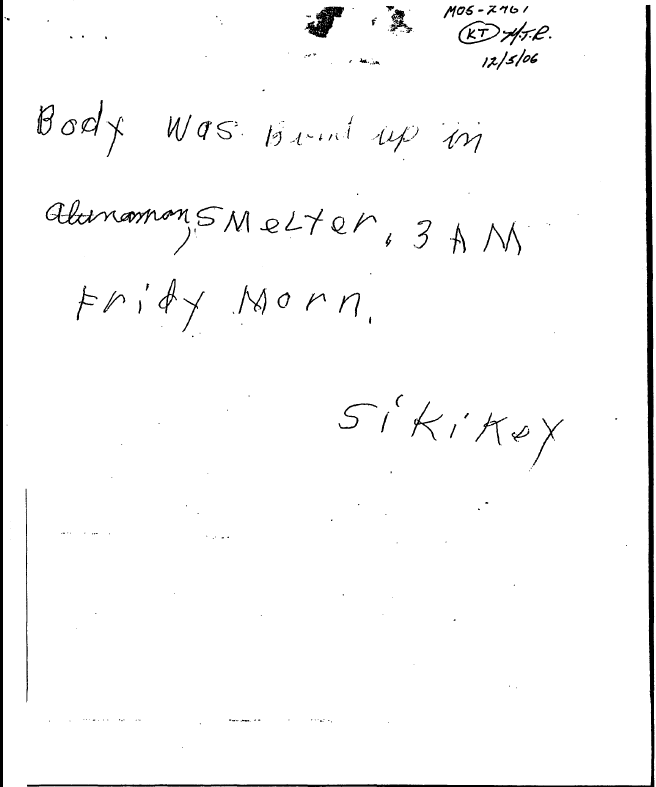 M06-2961
KT H.T.R.
12/5/06
Body was Burnt up in
alunamon, SMeLter, 3 AM
Fridy Morn.
SikiKey